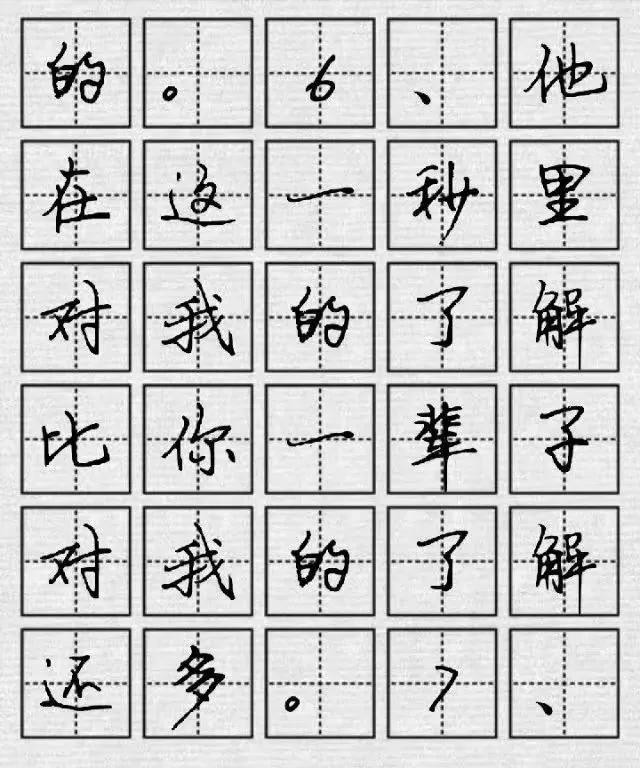 的。6、他
在这一秒里
对我的了解
比你一辈子
对我的了解
还多。7、